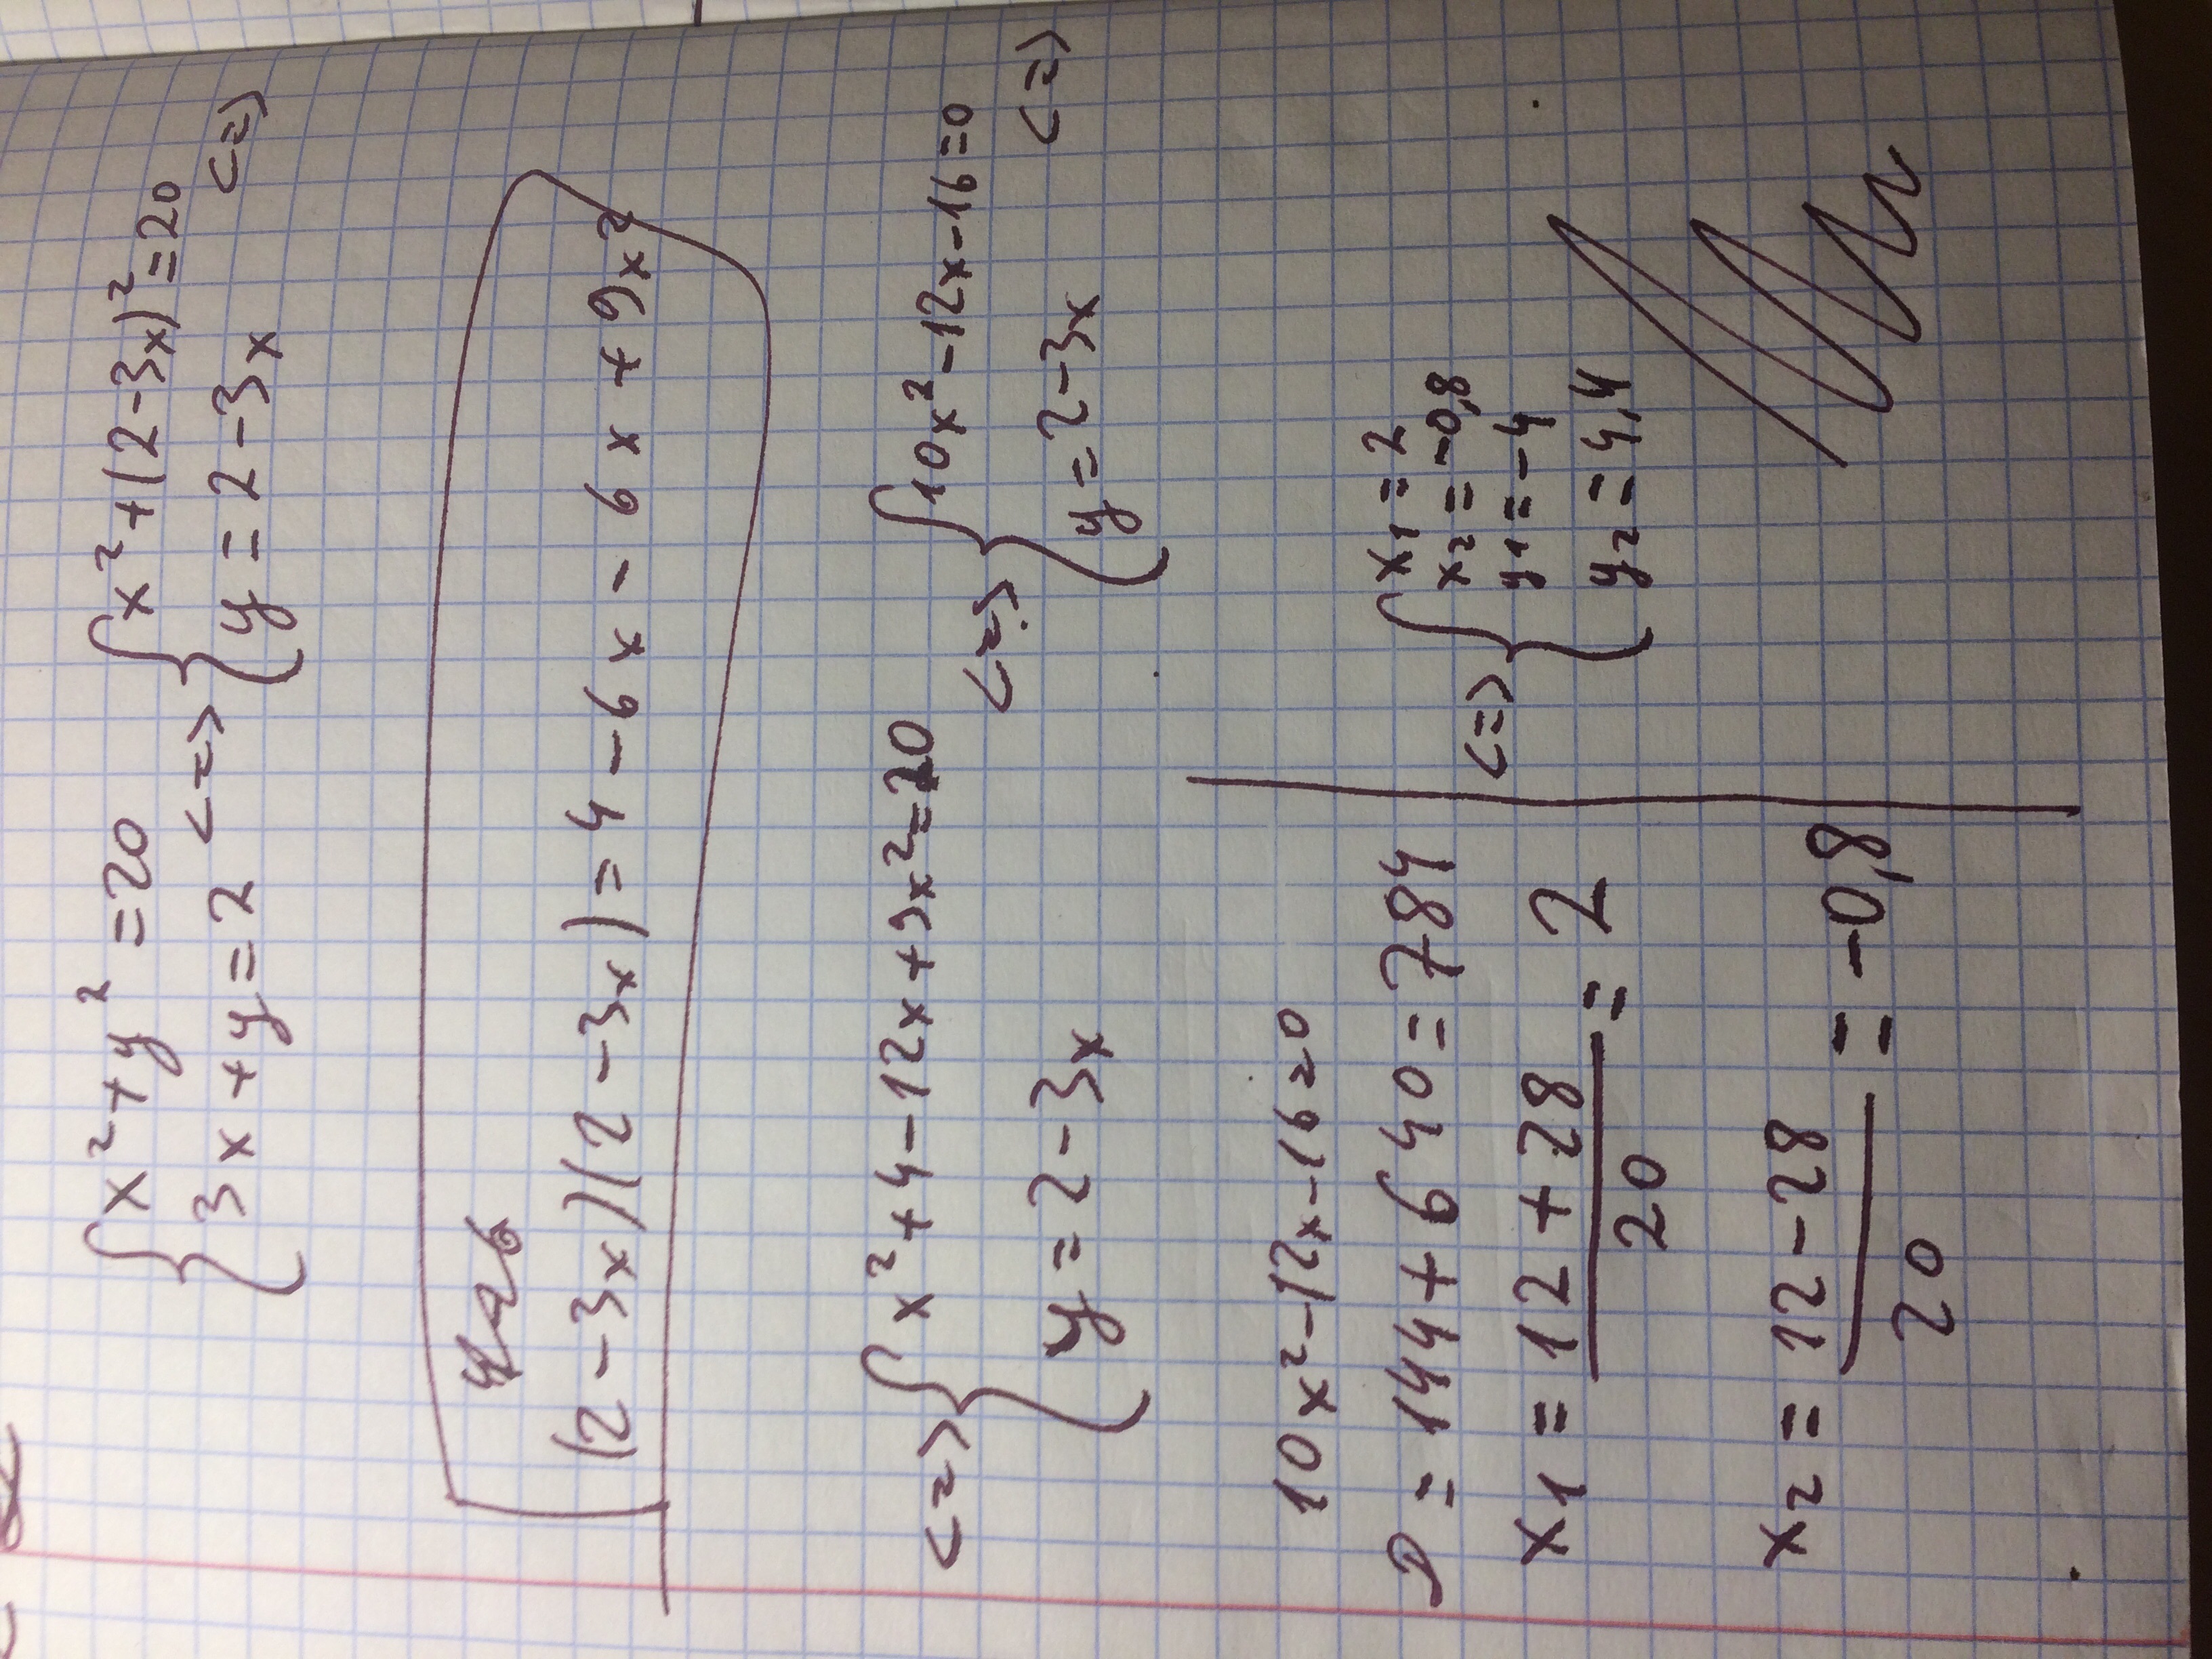 { x² + y² = 20 <=> { x² + (2-3x)² = 20 <=>
3x + y = 2 y = 2 - 3x
(2-3x)(2-3x) = 4 - 6x - 6x + 9x²
<=> { x² + 4 - 12x + 9x² = 20 <=> { 10x² - 12x - 16 = 0 <=>
y = 2 - 3x y = 2 - 3x
10x² - 12x - 16 = 0
D = 144 + 640 = 784
x₁ = 12 + 28 / 20 = 2
x₂ = 12 - 28 / 20 = -0,8
<=> { x₁ = 2
x₂ = -0,8
y₁ = -4
y₂ = 4,4